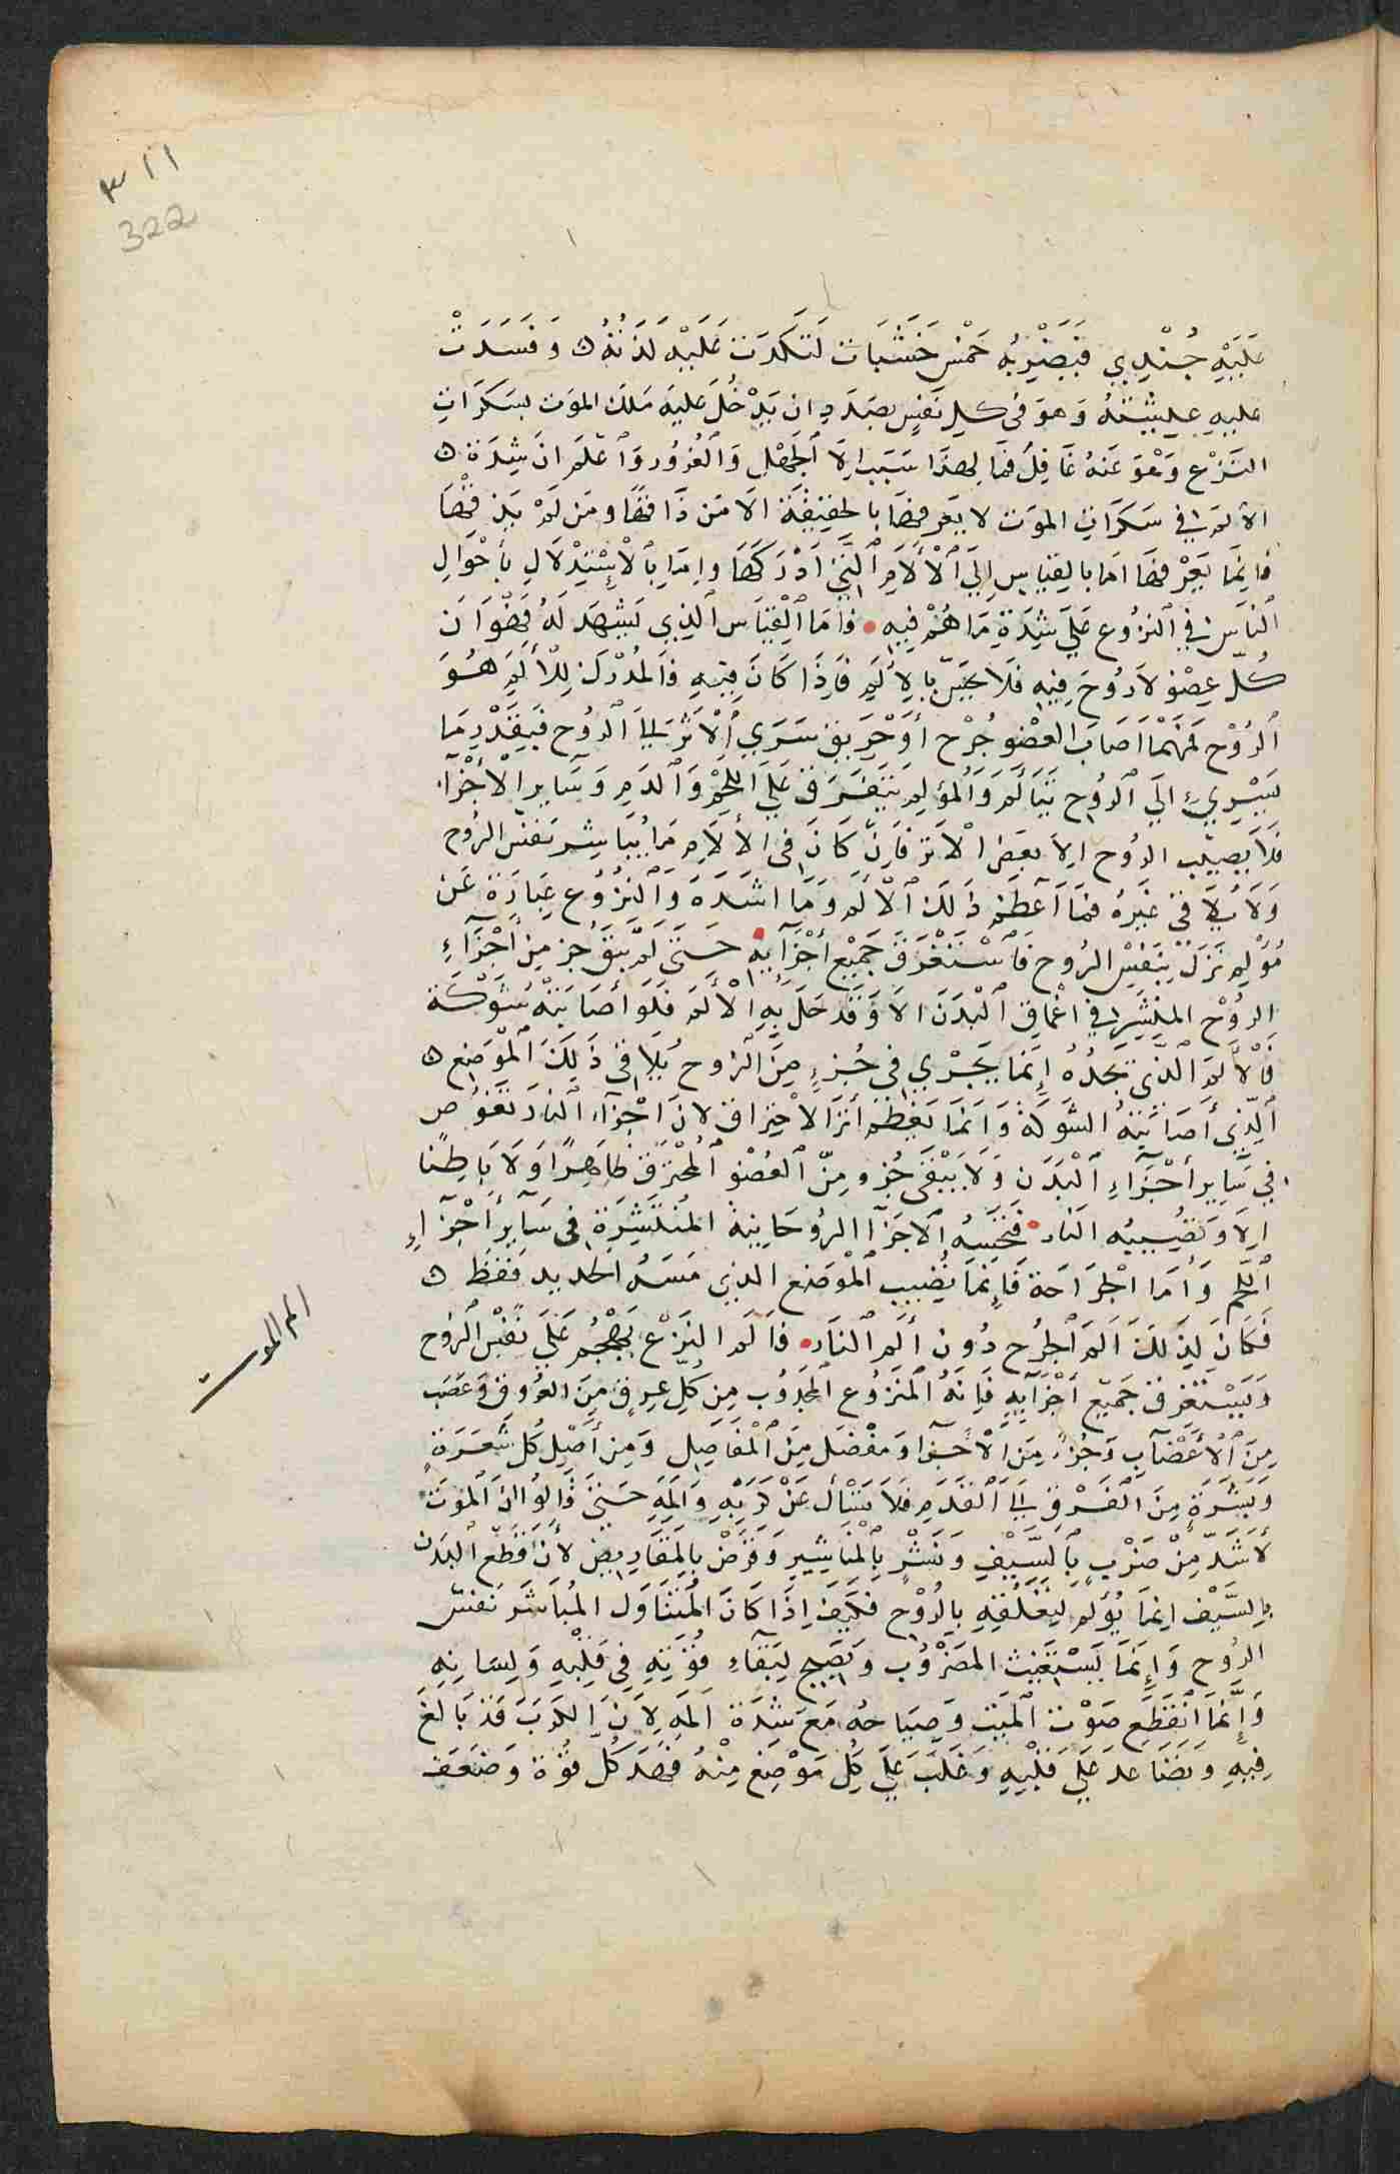 ٣١١
322
عَلَيْهِ جُنْدِيٌ فَيَضْرِبُه خَمْسَ خَشَبَاتٍ لَتَكَدَّرَتْ عَلَيْهِ لَذَّتُهُ وَفَسَدَتْ
عليهِ عِيشَتُهُ وَهوَ في كلِ نَفَسٍ بصَدَدِ ان يَدْخُلَ عليه مَلَكُ الموَت بسَكَرَاتِ
النَزْعِ وَهْوَ عَنهُ غَافِلٌ فمَا لهذَا سَبَب الاَّ الجَهْلِ وَالْغُرُورِ وَاعْلَم انَ شِدَةَ
الألَم في سَكَرَاتِ الموَت لا يَعرفهَا بالحقِيقَة الاَ مَن ذَاقهَا ومَن لَمْ يَذقْهَا
فَانِمَّا يَعْرفهَا امَا بالقيَاسِ الِيَ الْأَلاَمِ التَّي ادْرَكَهَا وامَا بِالْاِسْتِدْلَالِ بأَحْوَالِ
النَاس في النزُوع عَلَي شِدَةِ مَا هُمْ فيهِ • فَأمَا القِيَاس الذِي يَشهَد لَهُ فَهْوَ أن
كُلّ عضْو لاَ رُوحَ فِيهِ فلَا يحِسّ بالِأَلَمِ فَاِذَا كَانَ فِيْهِ فَالمُدْرك لِلْأَلَمِ هُوَ
الرُوْح فمَهْمَا اَصَابَ العضْو جُرْح أوْ حَرِيق سَرَي الْأثَر الَيَ الرُوح فبِقَدْرِمَا
يَسْرِي الَي الرُوح يَتَألَم وَالمُؤلِم يتَفَرَق عَلَي اللَّحْمِ وَالدَمِ وَسَايرِ الْأَجْزَآء
فلَا يصِيب الرُوح الِا بعَض الْأثر فَاِن كَانَ في الألَامِ مَا يُبَاشِر نَفس الرُوح
وَلَا يُلَاقي غَيرَهُ فمَا أعْظَم ذَلكَ الْألَم وَمَا اشَدَهَ وَالنَزُوُع عِبَارَة عَن
مُؤلِم نَزَل بِنَفْسِ الرُوح فَاسْتَغْرَقَ جَمِيْعَ أجْزَآئِهِ حَتَى لَم يَبْقَ جُز مِن أَجْزَآءِ
الرُوْحِ المنْتَشِر في اعْمَاقِ الْبدَنِ الاَ وَقَد حَلَّ بِهِ الْألَم فَلَو أصَابَتْهُ شَوْكَة
فَالْألَم الذّي يَجِدُهُ إنَّمَا يَجْرِي في جُزءٍ مِنَ الرُوح يُلَاقي ذَلِكَ المَوْضِع
الذِّي أصَابَتْهُ الشَوكَةُ وَانَمَا يَعْظُم أثَر الاْحْترِاق لِأنَ اجْزآء النَارِ تَغوُص
في سَايرِ أجْزَآءِ الْبَدَنِ وَلَا يَبْقَى جُزء مِنّ العُضْوِ المُحْتَرِقِ ظَاهِرًا وَلَا بَاطِنًا
الِا وَتُصِيبُه النَار • فَتحِسهُ الاَجَزآ الرُوحَانِيةُ المُنتَشِرَة في سَآئِر أجْزَاءِ
اللّحْم وَأمَا الْجرَاحَة فَاِنّمَا تُصِيب المَوْضَع الذِي مَسَهُ الحَدِيد فَقَط
الم الموت
فَكَانَ لذَلِكَ ألَم الجرُح دُون ألَمِ النَار • فَألَم النَزْعِ يَهْجُم عَلَي نَفْسِ الرُوح
وَيَسْتغرق جَمِيْع أجْزَآيِهِ فَاِنَهُ المنَزُوع المجَذُوب مِن كلِّ عِرقٍ مِنَ العُرُوقِ وَعَصَب
مِنَ الأَعْصَابِ وَجُزءٍ مِنَ الاَجَزآ وَمَفْصَل مِنَ المفَاصِلِ وَمِن أصْل كُل شَعَرَةٍ
وَبَشَرَةٍ مِنَ الفَرْقِ الَيَ القَدَمِ فَلاَ تَسْأل عَنْ كَرْبِهِ وَالَمِهِ حَتىَ قَالُوا انَ الموَت
لأَشَدّ مِنْ ضَرْبٍ بالسَّيْفِ وَنَشْرٍ بالمنَاشِيرِ وَقَرْضٍ بالمقَارِيضِ لِأنَ قَطْع البَدَن
بالسَيْف انمَا يُؤلم لِتَعَلُقِهِ بالرُوْحِ فكَيفَ اِذَا كَانَ المُتَنَاوَل المُبَاشَر نَفس
الروُح وَاِنَمَا يَسْتغَيِث المضَرْوب وَيَصِيح لِبَقَاءِ قُوَتِهِ فِي قلْبِهِ وَلِسَانِهِ
وَاِنَّمَا انْقَطَع صَوْت المَيِت وَصِيَاحهُ مَعَ شِدَة ألَمِهِ لِأنَ الكَرَب قَد بَالغَ
فِيهِ وَتصَاعد عَلَي قلْبِهِ وَغَلَبَ عَلَي كُلِ مَوْضعٍ مِنْهُ فَهَدَ كُل قُوَةٍ وَضَعَف